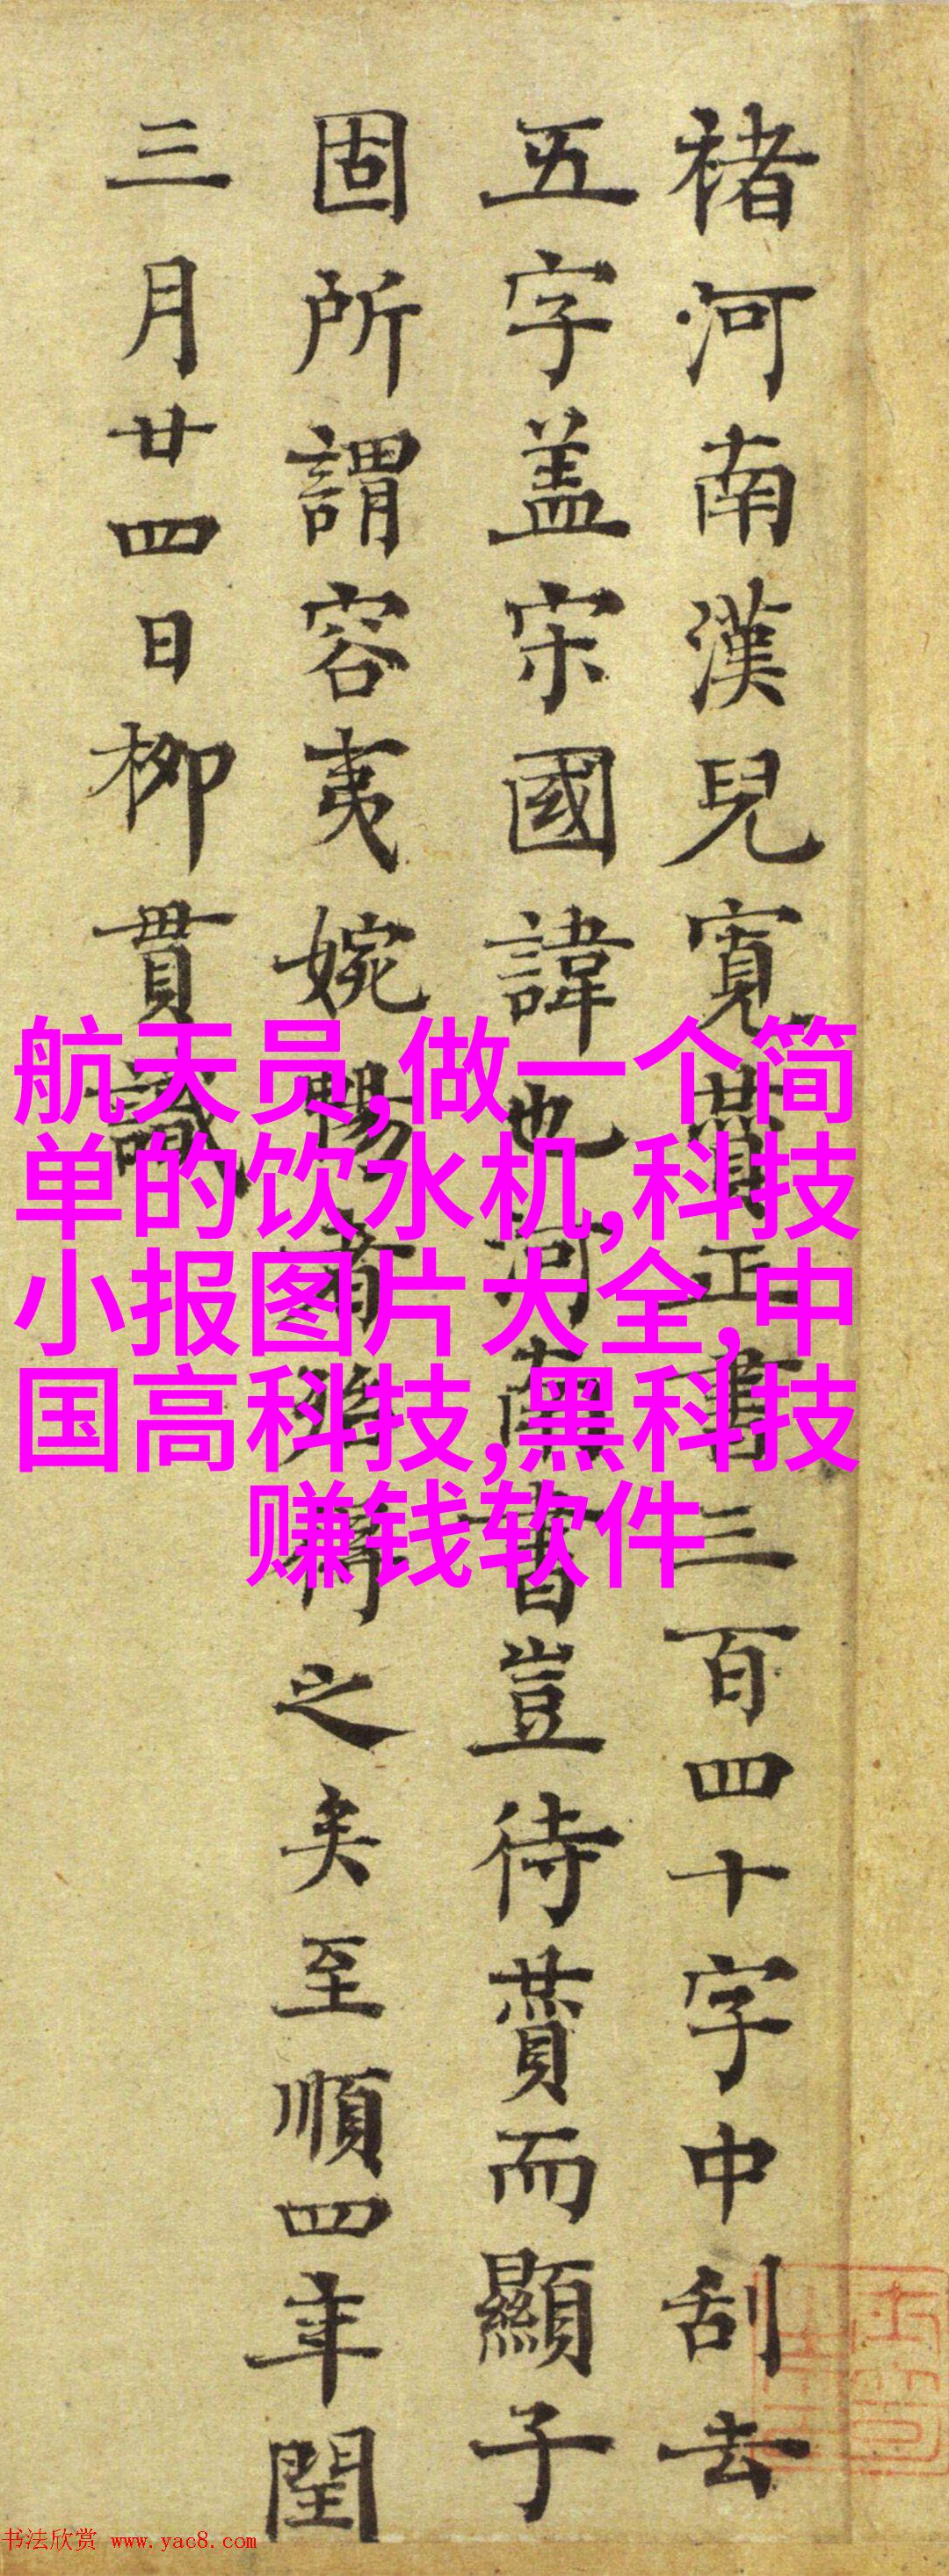 褚河南漢兒寬贊正書三百四十字中刮去
五字蓋宋國諱也河南書豈待贊而顯子
固所謂容夷婉暢者殆得之矣至順四年閏
三月廿四日柳貫識
航天员,做一个简
单的饮水机,科技
小报图片大全,中
国高科技,黑科技
赚钱软件
书法欣赏 www.yac8.com